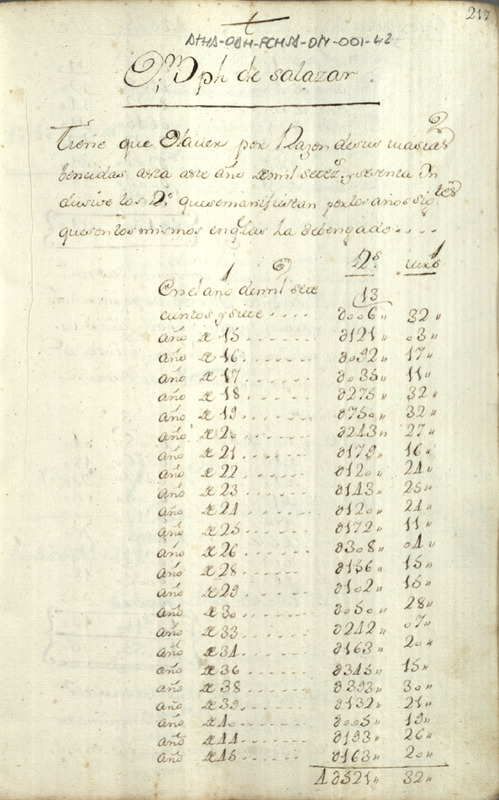 217
AHHA-OAH-FCHSA-DIV-001-42
Dph de salazar
Tiene que Hauer por Razon desus
bencidas asta este año demil setezs y setenta In
clusive los Rs quesemanifiestan porlos años sigtes
quesonlos mismos enqlas ha debengado....
Rs mrs
Enelaño demil sete 13
cientos y siete.... 0006 " 32 "
año de 15....... 0121 " 03 "
año de 16....... 0092 " 17 "
año de 17....... 0035 " 11 "
año de 18....... 0275 " 32 "
año de 19....... 0750 " 32 "
año de 20....... 0243 " 27 "
año de 21....... 0179 " 16 "
año de 22....... 0120 " 24 "
año de 23....... 0143 " 25 "
año de 24....... 0120 " 24 "
año de 25....... 0172 " 11 "
año de 26....... 0308 " 04 "
año de 28....... 0156 " 15 "
año de 29....... 0102 " 15 "
año de 30....... 0050 " 28 "
año de 33....... 0242 " 07 "
año de 34....... 0163 " 20 "
año de 36....... 0345 " 15 "
año de 38....... 0393 " 30 "
año de 39....... 0132 " 21 "
año de 40....... 0005 " 19 "
año de 44....... 0193 " 26 "
año de 45....... 0163 " 20 "
40521 " 32 "